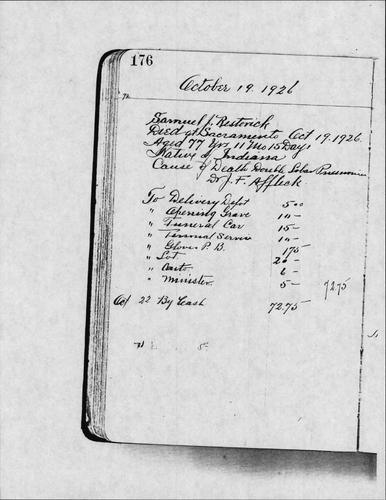 176
October 19. 1926
Samuel J. Resterick
Died at Sacramento Oct 19. 1926.
Aged 77 Yrs 11 Mo 15 Days
Native of Indiana
Cause of Death Double Lobar Pneumonia
Dr J. F. Affleck
To Delivery Depot 5.00
" Opening Grave 10-
" Funeral Car 15-
" Service 10-
" Gloves P.B. 1.75
" Lot 20-
" Auto 6-
" Minister 5- 7275
Oct 22 By Cash 72.75